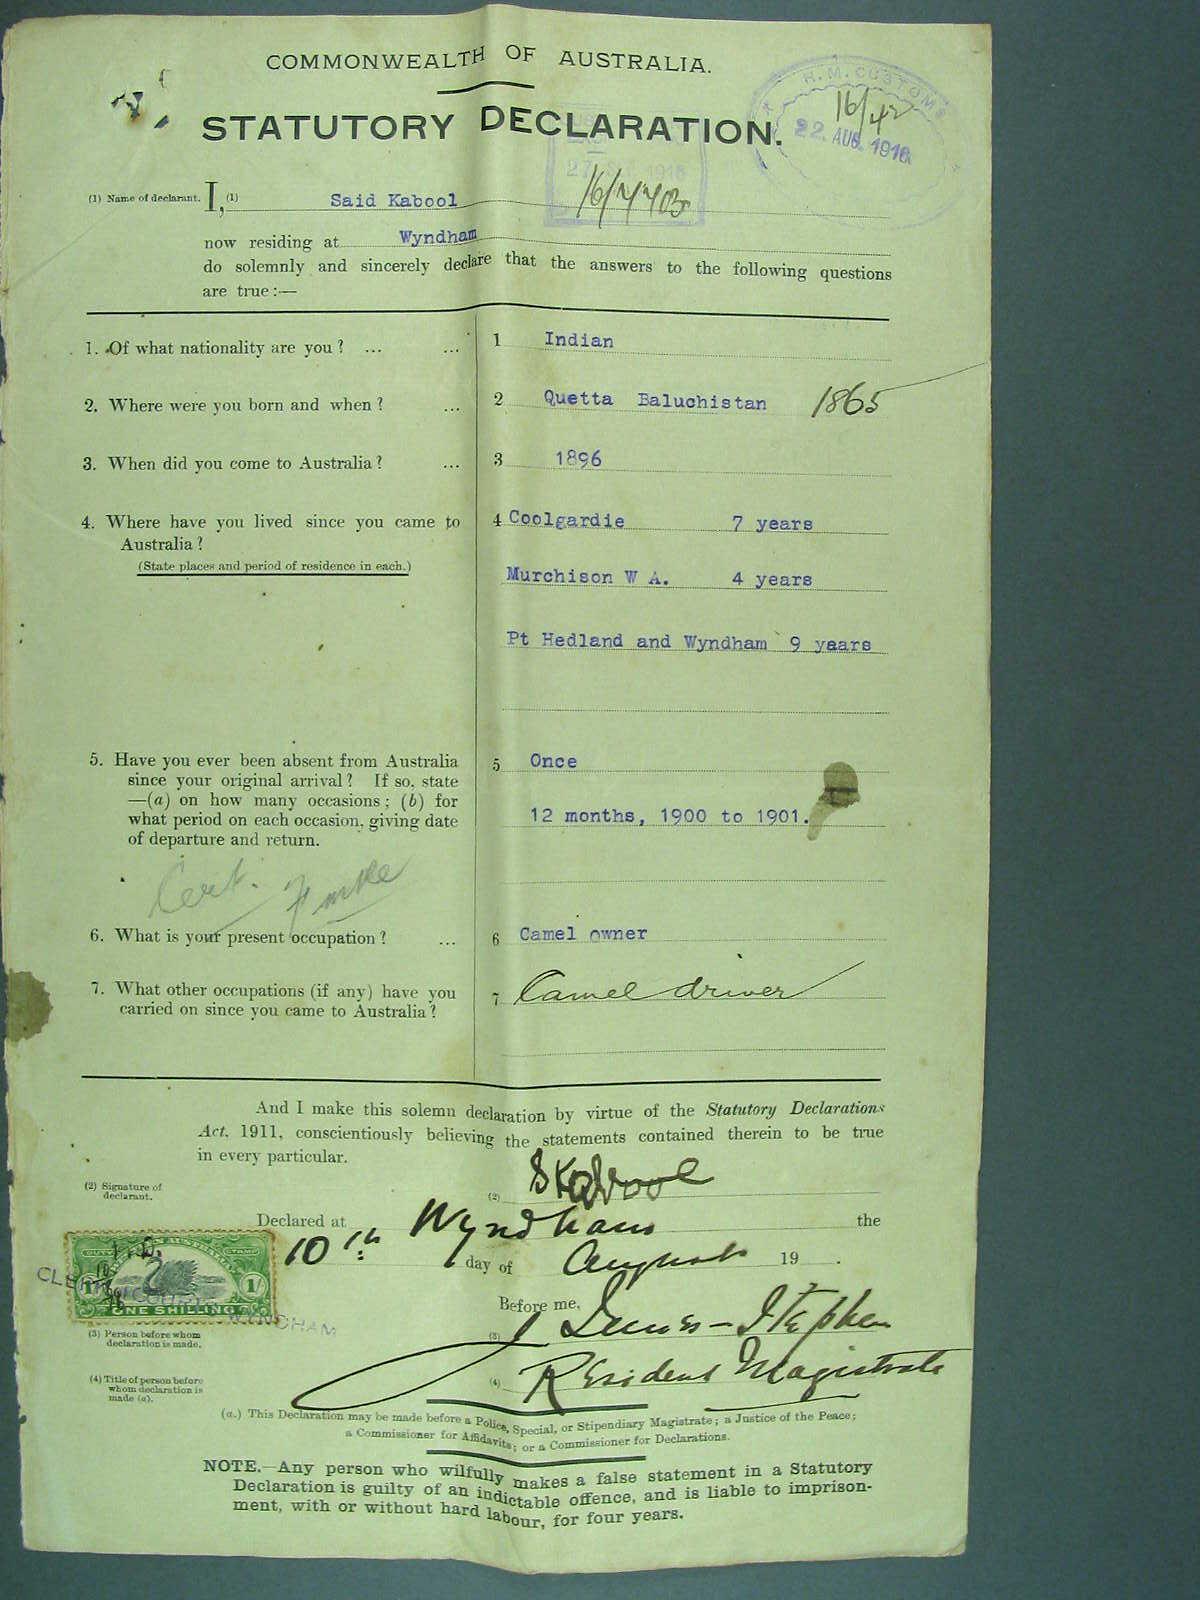 COMMONWEALTH OF AUSTRALIA.
H.M. CUSTOMS
16/42
22 AUG. 1916
STATUTORY DECLARATION.
1916
(1) Name of declarant. I, (1) Said Kabool
now residing at Wyndham
do solemnly and sincerely declare that the answers to the following questions
are true :—
1. Of what nationality are you ? ... ... 1 Indian
2. Where were you born and when ? ... 2 Quetta Baluchistan 1865
3. When did you come to Australia ? ... 3 1896
4. Where have you lived since you came to 4 Coolgardie 7 years
Australia ?
(State places and period of residence in each.)
Murchison W A. 4 years
Pt Hedland and Wyndham 9 yaars
5. Have you ever been absent from Australia 5 Once
since your original arrival ? If so, state
—(a) on how many occasions ; (b) for
what period on each occasion, giving date 12 months, 1900 to 1901.
of departure and return.
Cert.
6. What is your present occupation ? ... 6 Camel owner
7. What other occupations (if any) have you 7 Camel driver
carried on since you came to Australia ?
And I make this solemn declaration by virtue of the Statutory Declarations
Act, 1911, conscientiously believing the statements contained therein to be true
in every particular.
(2) Signature of
declarant.
(2) S Kabool
Declared at Wyndham the
10th day of August 19 .
DUTY STAMP
WESTERN AUSTRALIA
1/
ONE SHILLING
WYNDHAM
Before me,
(3) Person before whom
declaration is made.
(3) Stephen
(4) Title of person before
whom declaration is
made (a).
(4) Resident Magistrate
(a.) This Declaration may be made before a Police, Special, or Stipendiary Magistrate ; a Justice of the Peace ;
a Commissioner for Affidavits ; or a Commissioner for Declarations.
NOTE.—Any person who wilfully makes a false statement in a Statutory
Declaration is guilty of an indictable offence, and is liable to imprison-
ment, with or without hard labour, for four years.